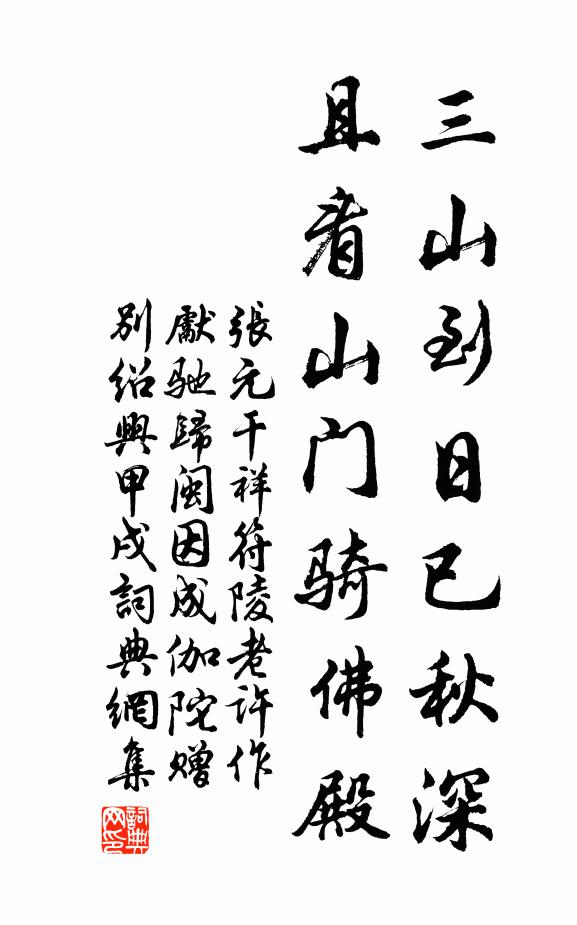 三山到日已秋深
且看山门骑佛殿
張元干祥符陵老許作
獻馳歸閩因成伽陀贈
別紹興甲戌詞典網集
詞典
网印